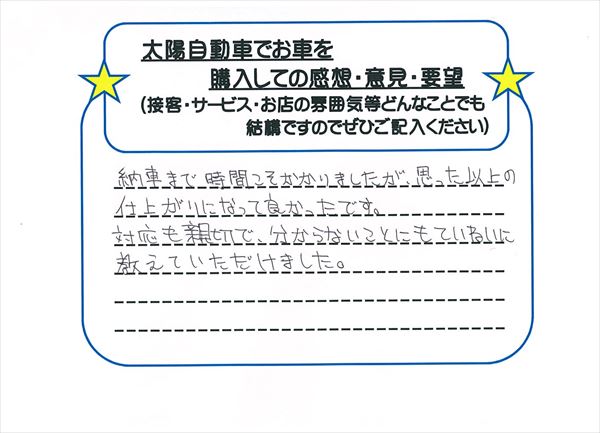 太陽自動車でお車を
購入しての感想・意見・要望
(接客・サービス・お店の雰囲気等どんなことでも
結構ですのでぜひご記入ください)
納車まで時間こそかかりましたが、思った以上の
仕上がりになって良かったです。
対応も親切で、分からないことにもていねいに
教えていただけました。